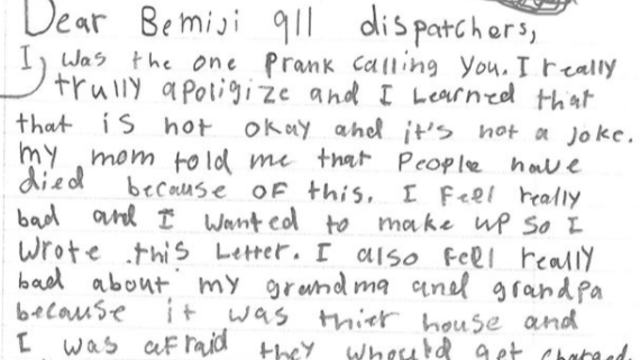 Dear Bemiji 911 dispatchers,
I, was the one prank calling you. I really
trully apoligize and I Learned that
that is not okay and it's not a joke.
my mom told me that people have
died because of this. I Feel really
bad and I wanted to make up so I
wrote this Letter. I also Feel really
bad about my grandma and grandpa
because it was thier house and
I was afraid they whould get charged